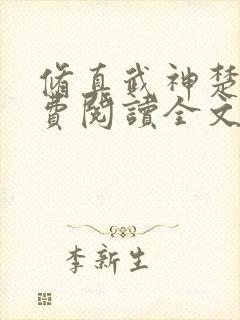 脩真武神楚
費閱讀全文
李新生